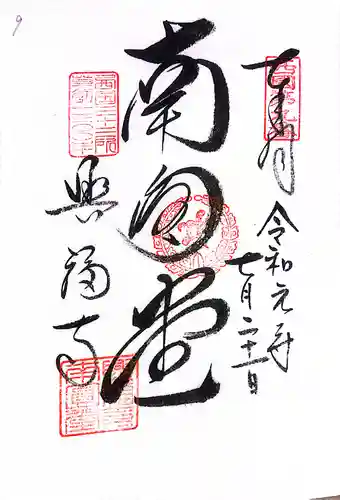 奉拝
令和元年
七月二十一日
南円堂
興福寺
9